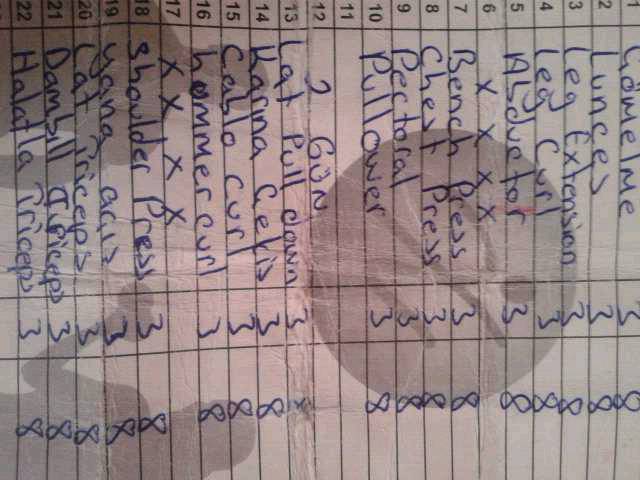 1 Çömelme 3 8
2 Lunces 3 8
3 Leg Extension 3 8
4 Leg Curl 3 8
5 Abductor 3 8
6 x x x x
7 Bench Press 3 8
8 Chest Press 3 8
9 Pectoral 3 8
10 Pullower 3 8
11
12 2. Gün
13 Lat Pull down 3
14 Karna Çekiş 3 8
15 Cablo Curl 3 8
16 hommer curl 3 8
17 x x x x
18 Shoulder Press 3 8
19 yana açış 3 8
20 Lat Triceps 3 8
21 Dambıll Triceps 3 8
22 Halatla Triceps 3 8